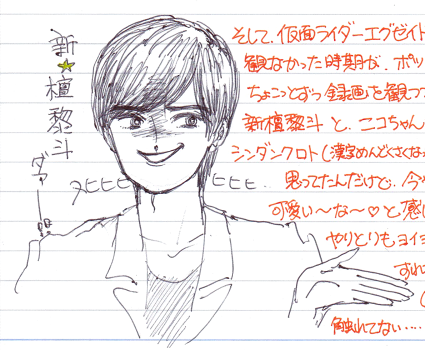 新★檀黎斗
ダァーーー!!!
ヌヒヒヒ
ヒヒヒ.
そして、仮面ライダーエグゼイド
観なかった時期が、ポッ
ちょこっとずつ録画を観つ
新檀黎斗と、ニコちゃん
シンダンクロト(漢字めんどくさくな
思ってたんだけど、今
可愛い〜な〜♡と感
やりとりもヨイ
すれ
(
触れてない....